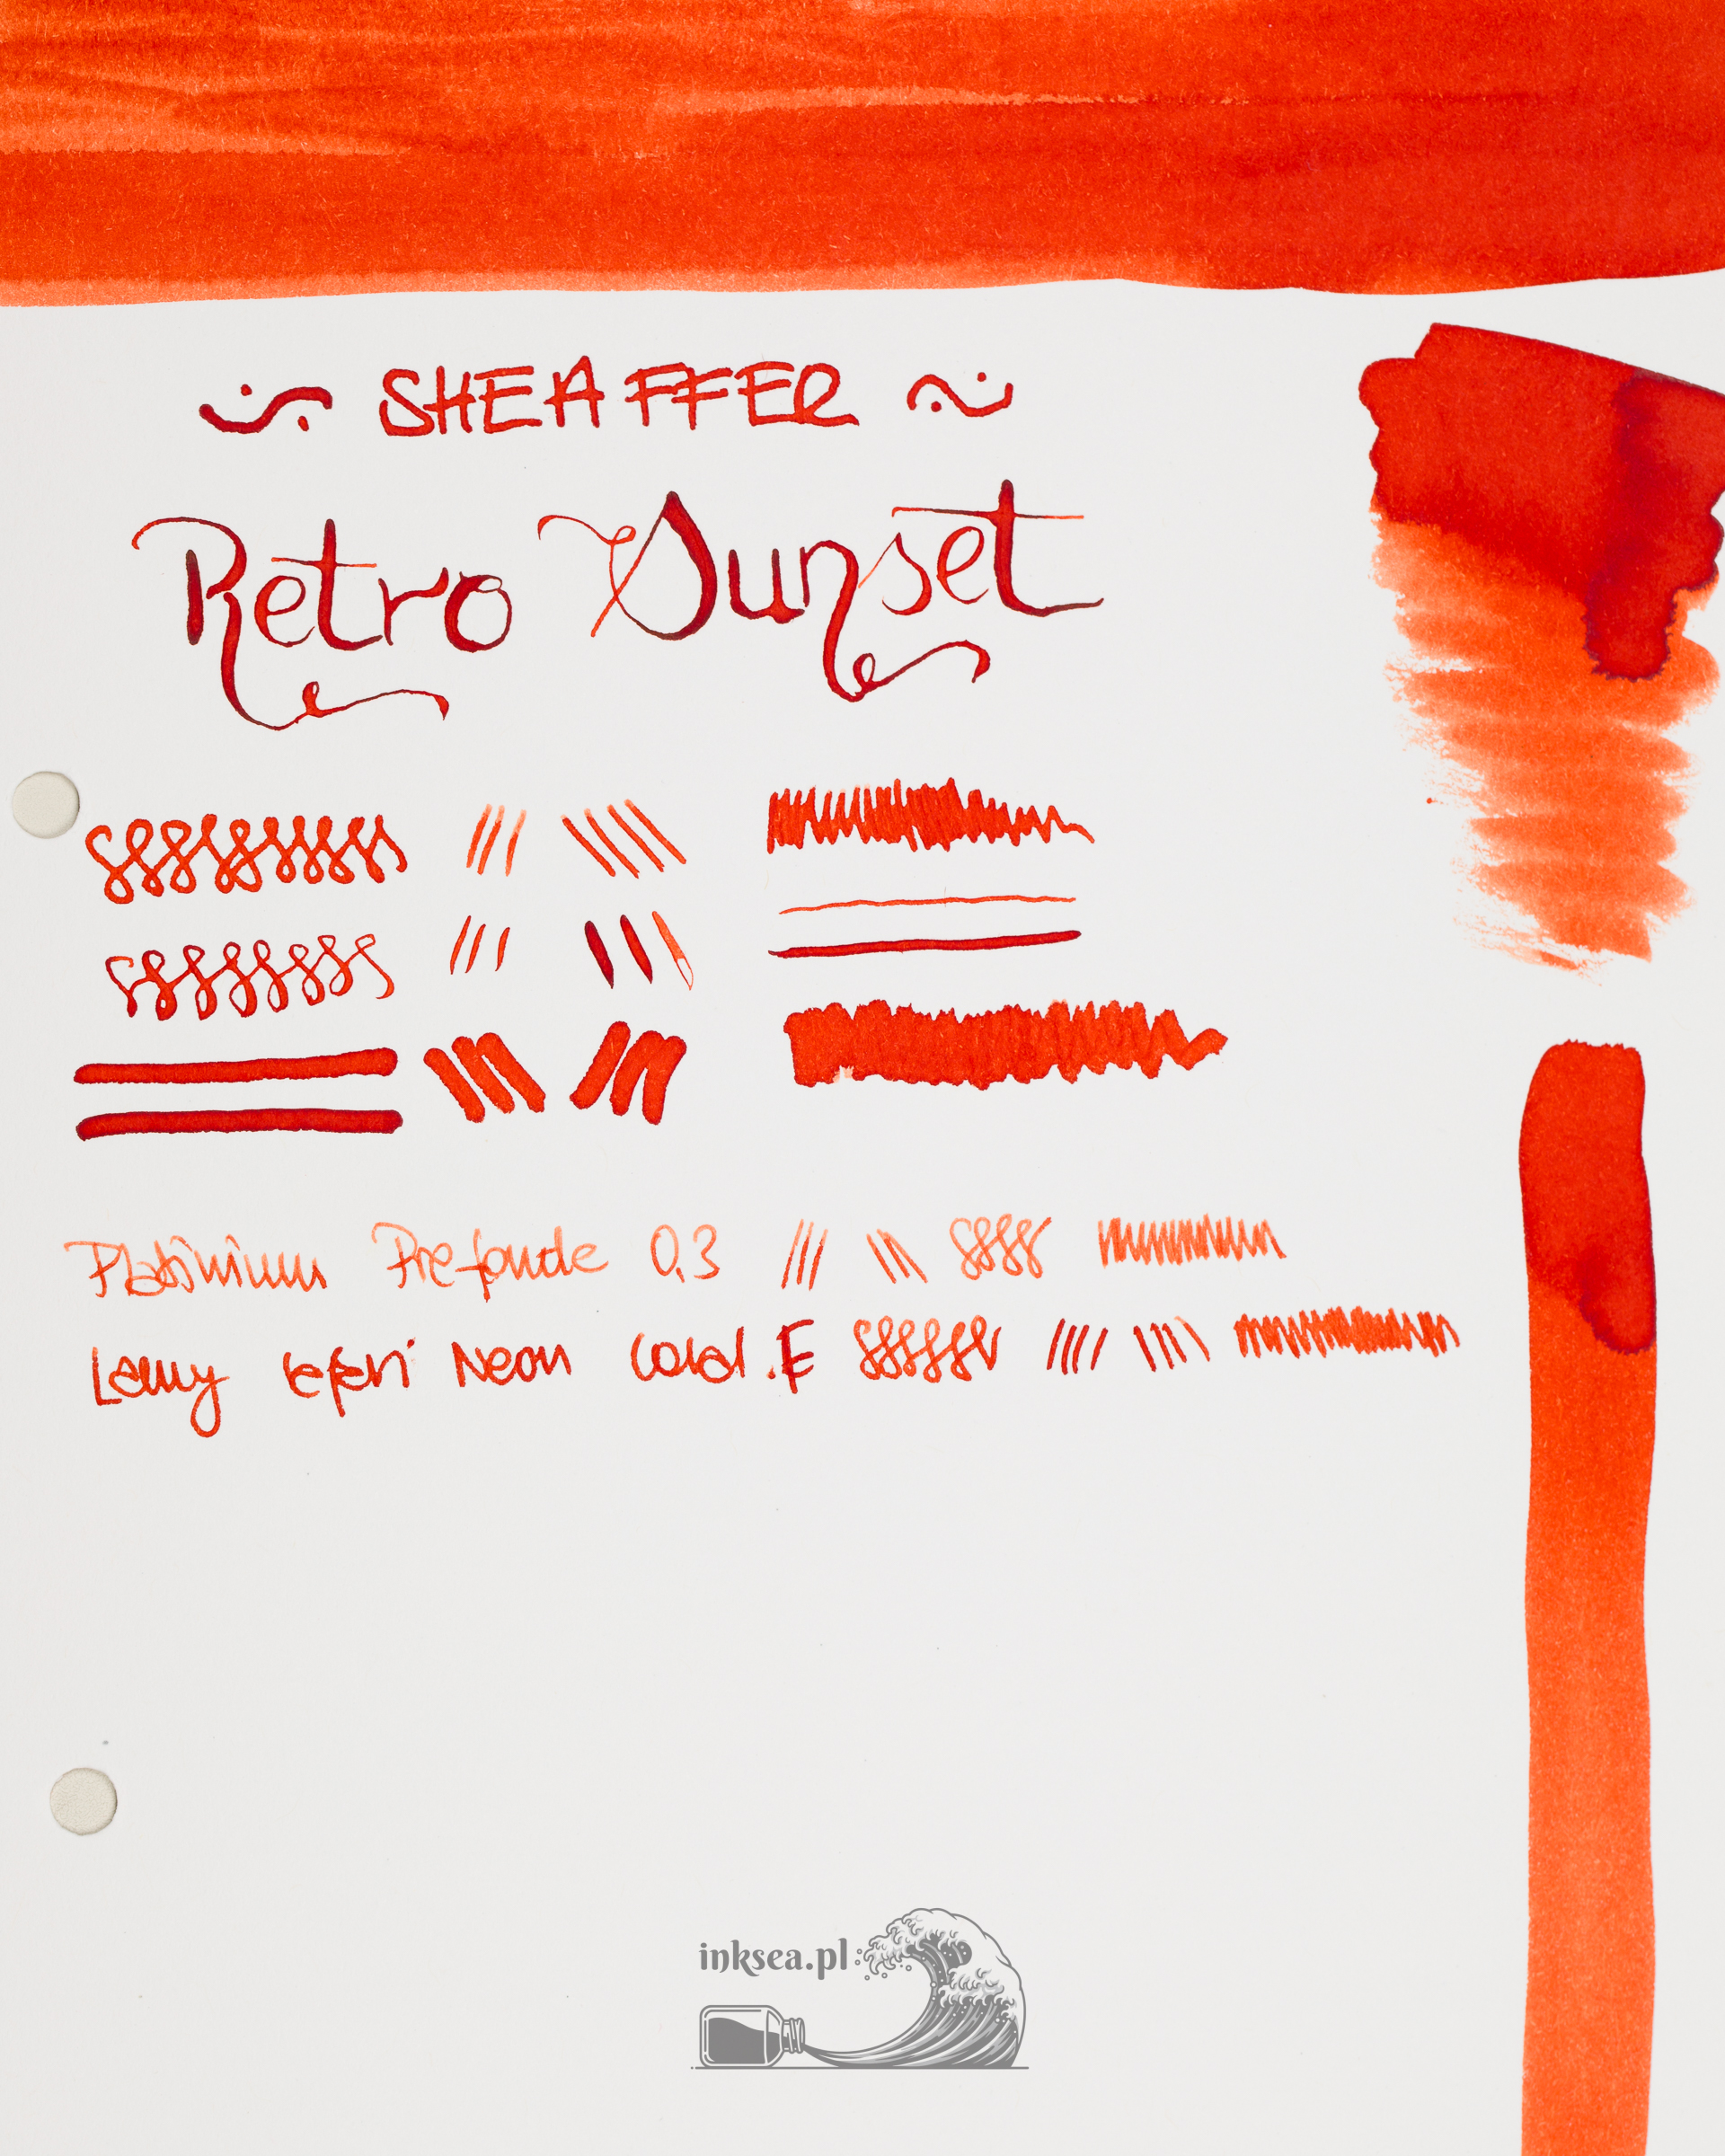 SHEAFFER
Retro Sunset
Platinium Prefonde 0,3
Lamy safari Neon Coral .F
inksea.pl